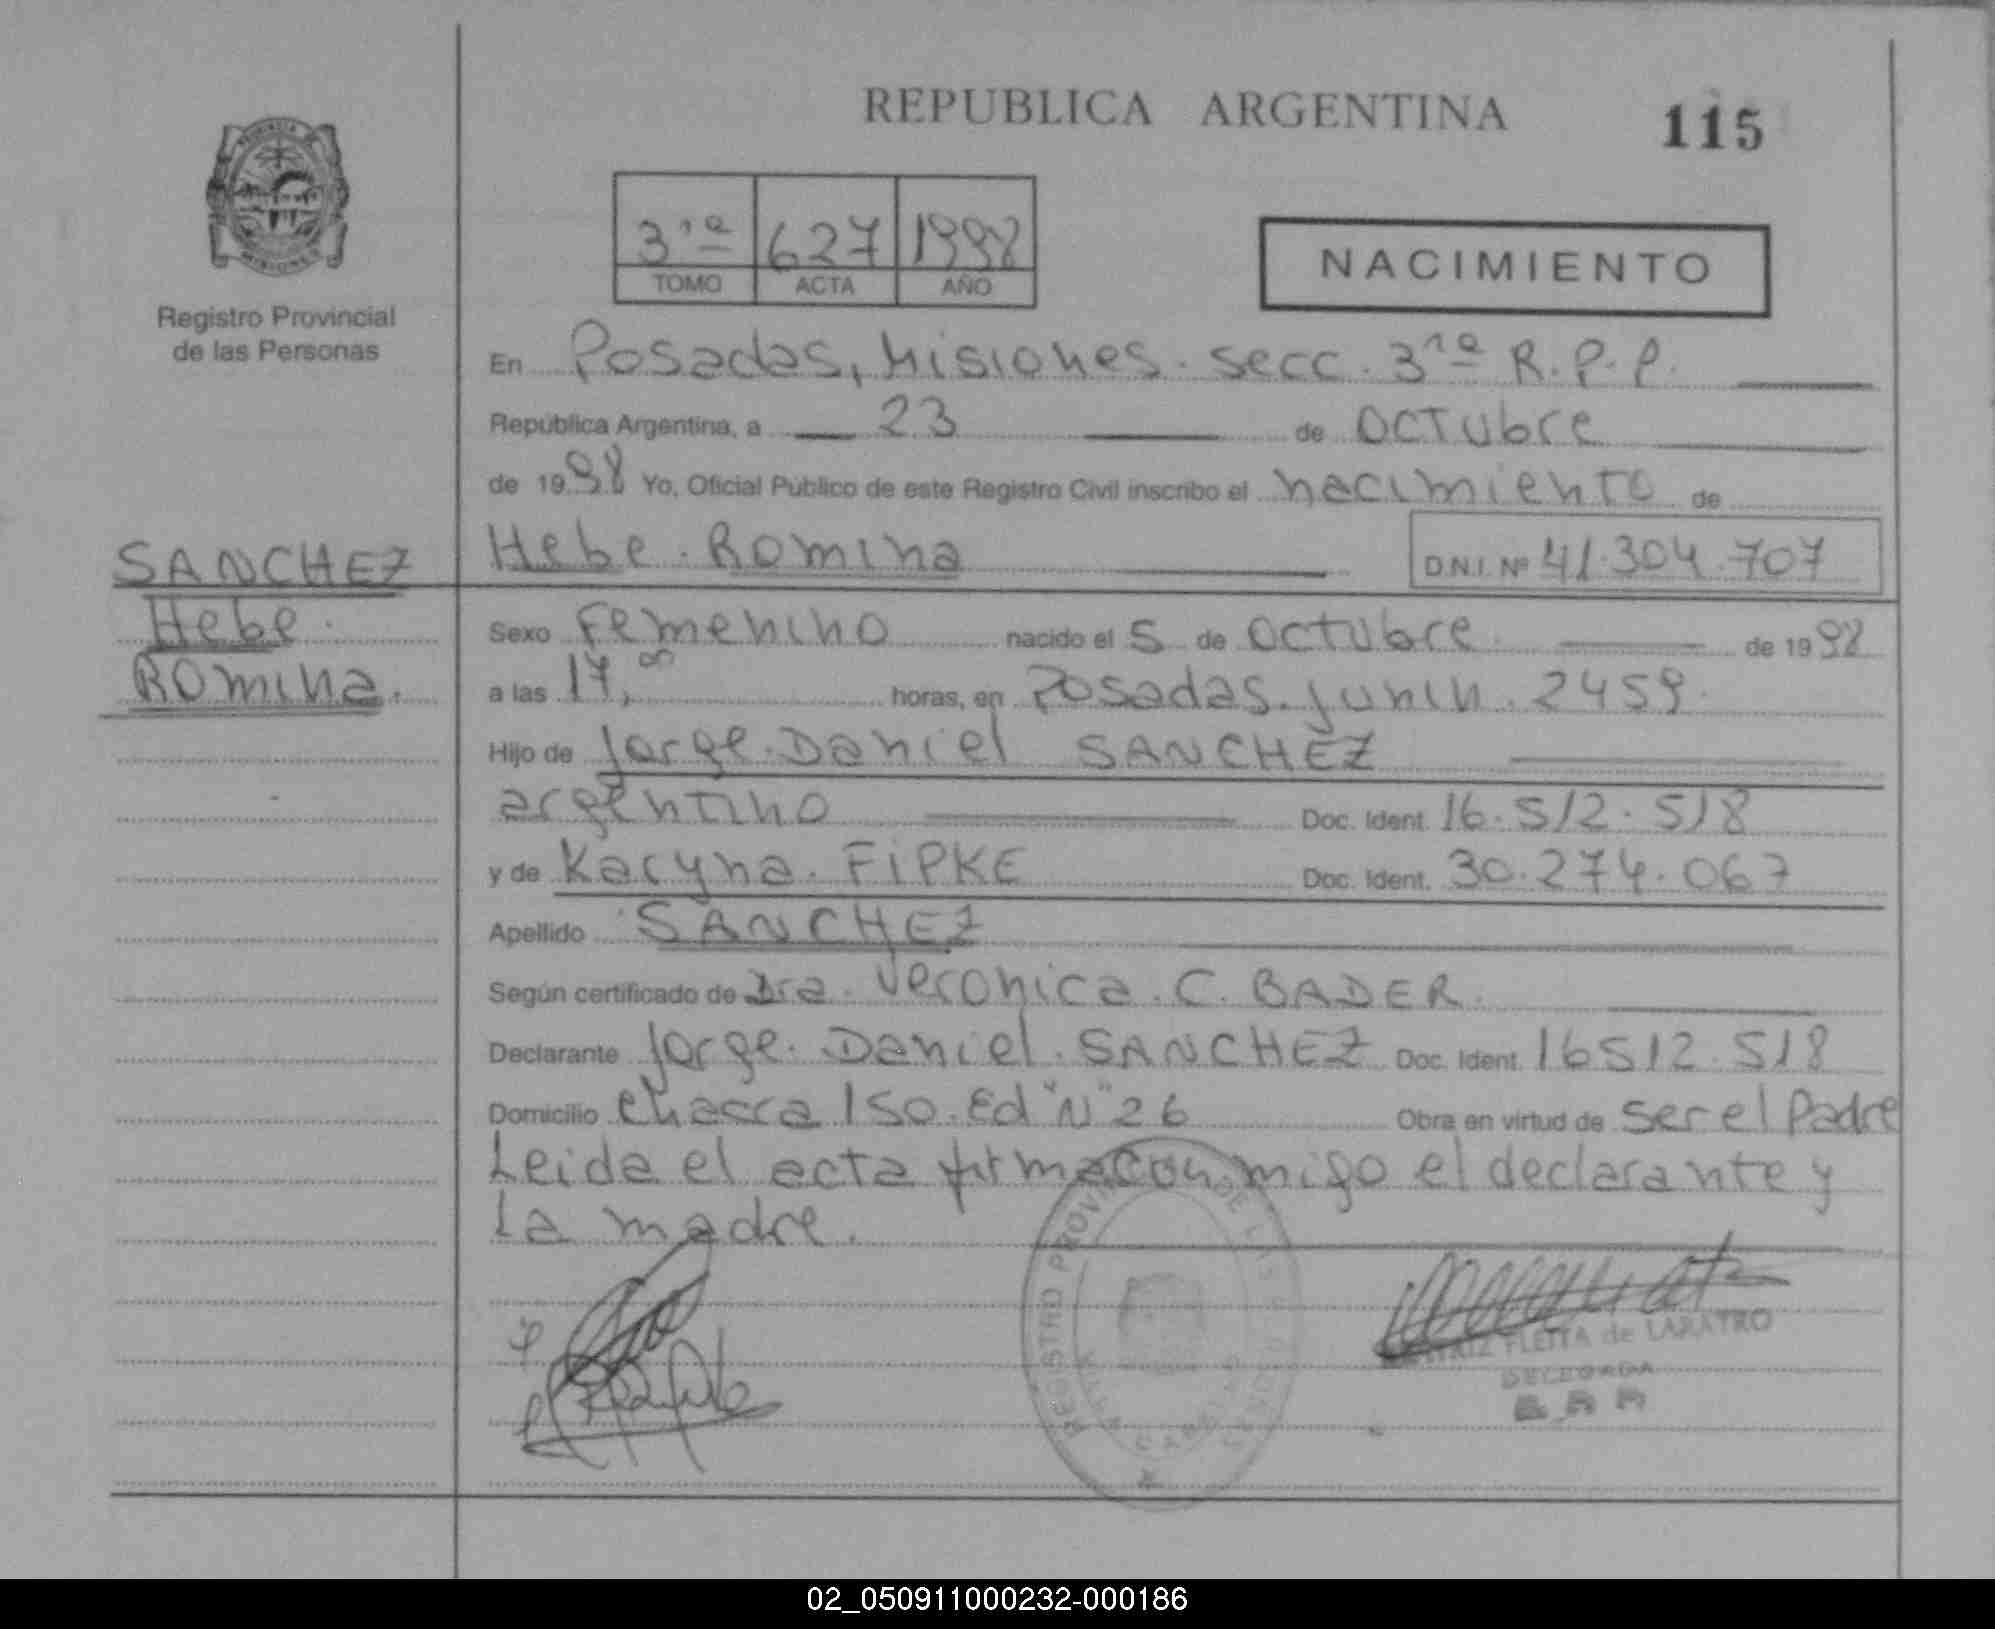 REPUBLICA ARGENTINA
115
PROVINCIA
MISIONES
Registro Provincial
de las Personas
3ra 627 1998
TOMO ACTA AÑO
NACIMIENTO
En Posadas, Misiones. secc. 3ra R.P.P.
República Argentina, a 23 de Octubre
de 1998 Yo, Oficial Público de este Registro Civil inscribo el nacimiento de
Hebe. Romina D.N.I. Nº 41.304.707
SANCHEZ
Hebe.
Romina.
Sexo Femenino nacido el 5 de Octubre. de 1998
a las 17,00 horas, en Posadas. Junin. 2459.
Hijo de Jorge. Daniel SANCHEZ
argentino Doc. Ident. 16.512.518
y de Karyna. FIPKE Doc. Ident. 30.274.067
Apellido SANCHEZ
Según certificado de Dra. Veronica. C. BADER.
Declarante Jorge. Daniel. SANCHEZ Doc. Ident. 16512.518
Domicilio Chacra 150. Ed "N" 26 Obra en virtud de ser el Padre
Leida el acta firmaconmigo el declarante y
la madre.
REGISTRO PROVINCIAL DE LAS
FLEITA de LARATRO
DELEGADA
02_050911000232-000186